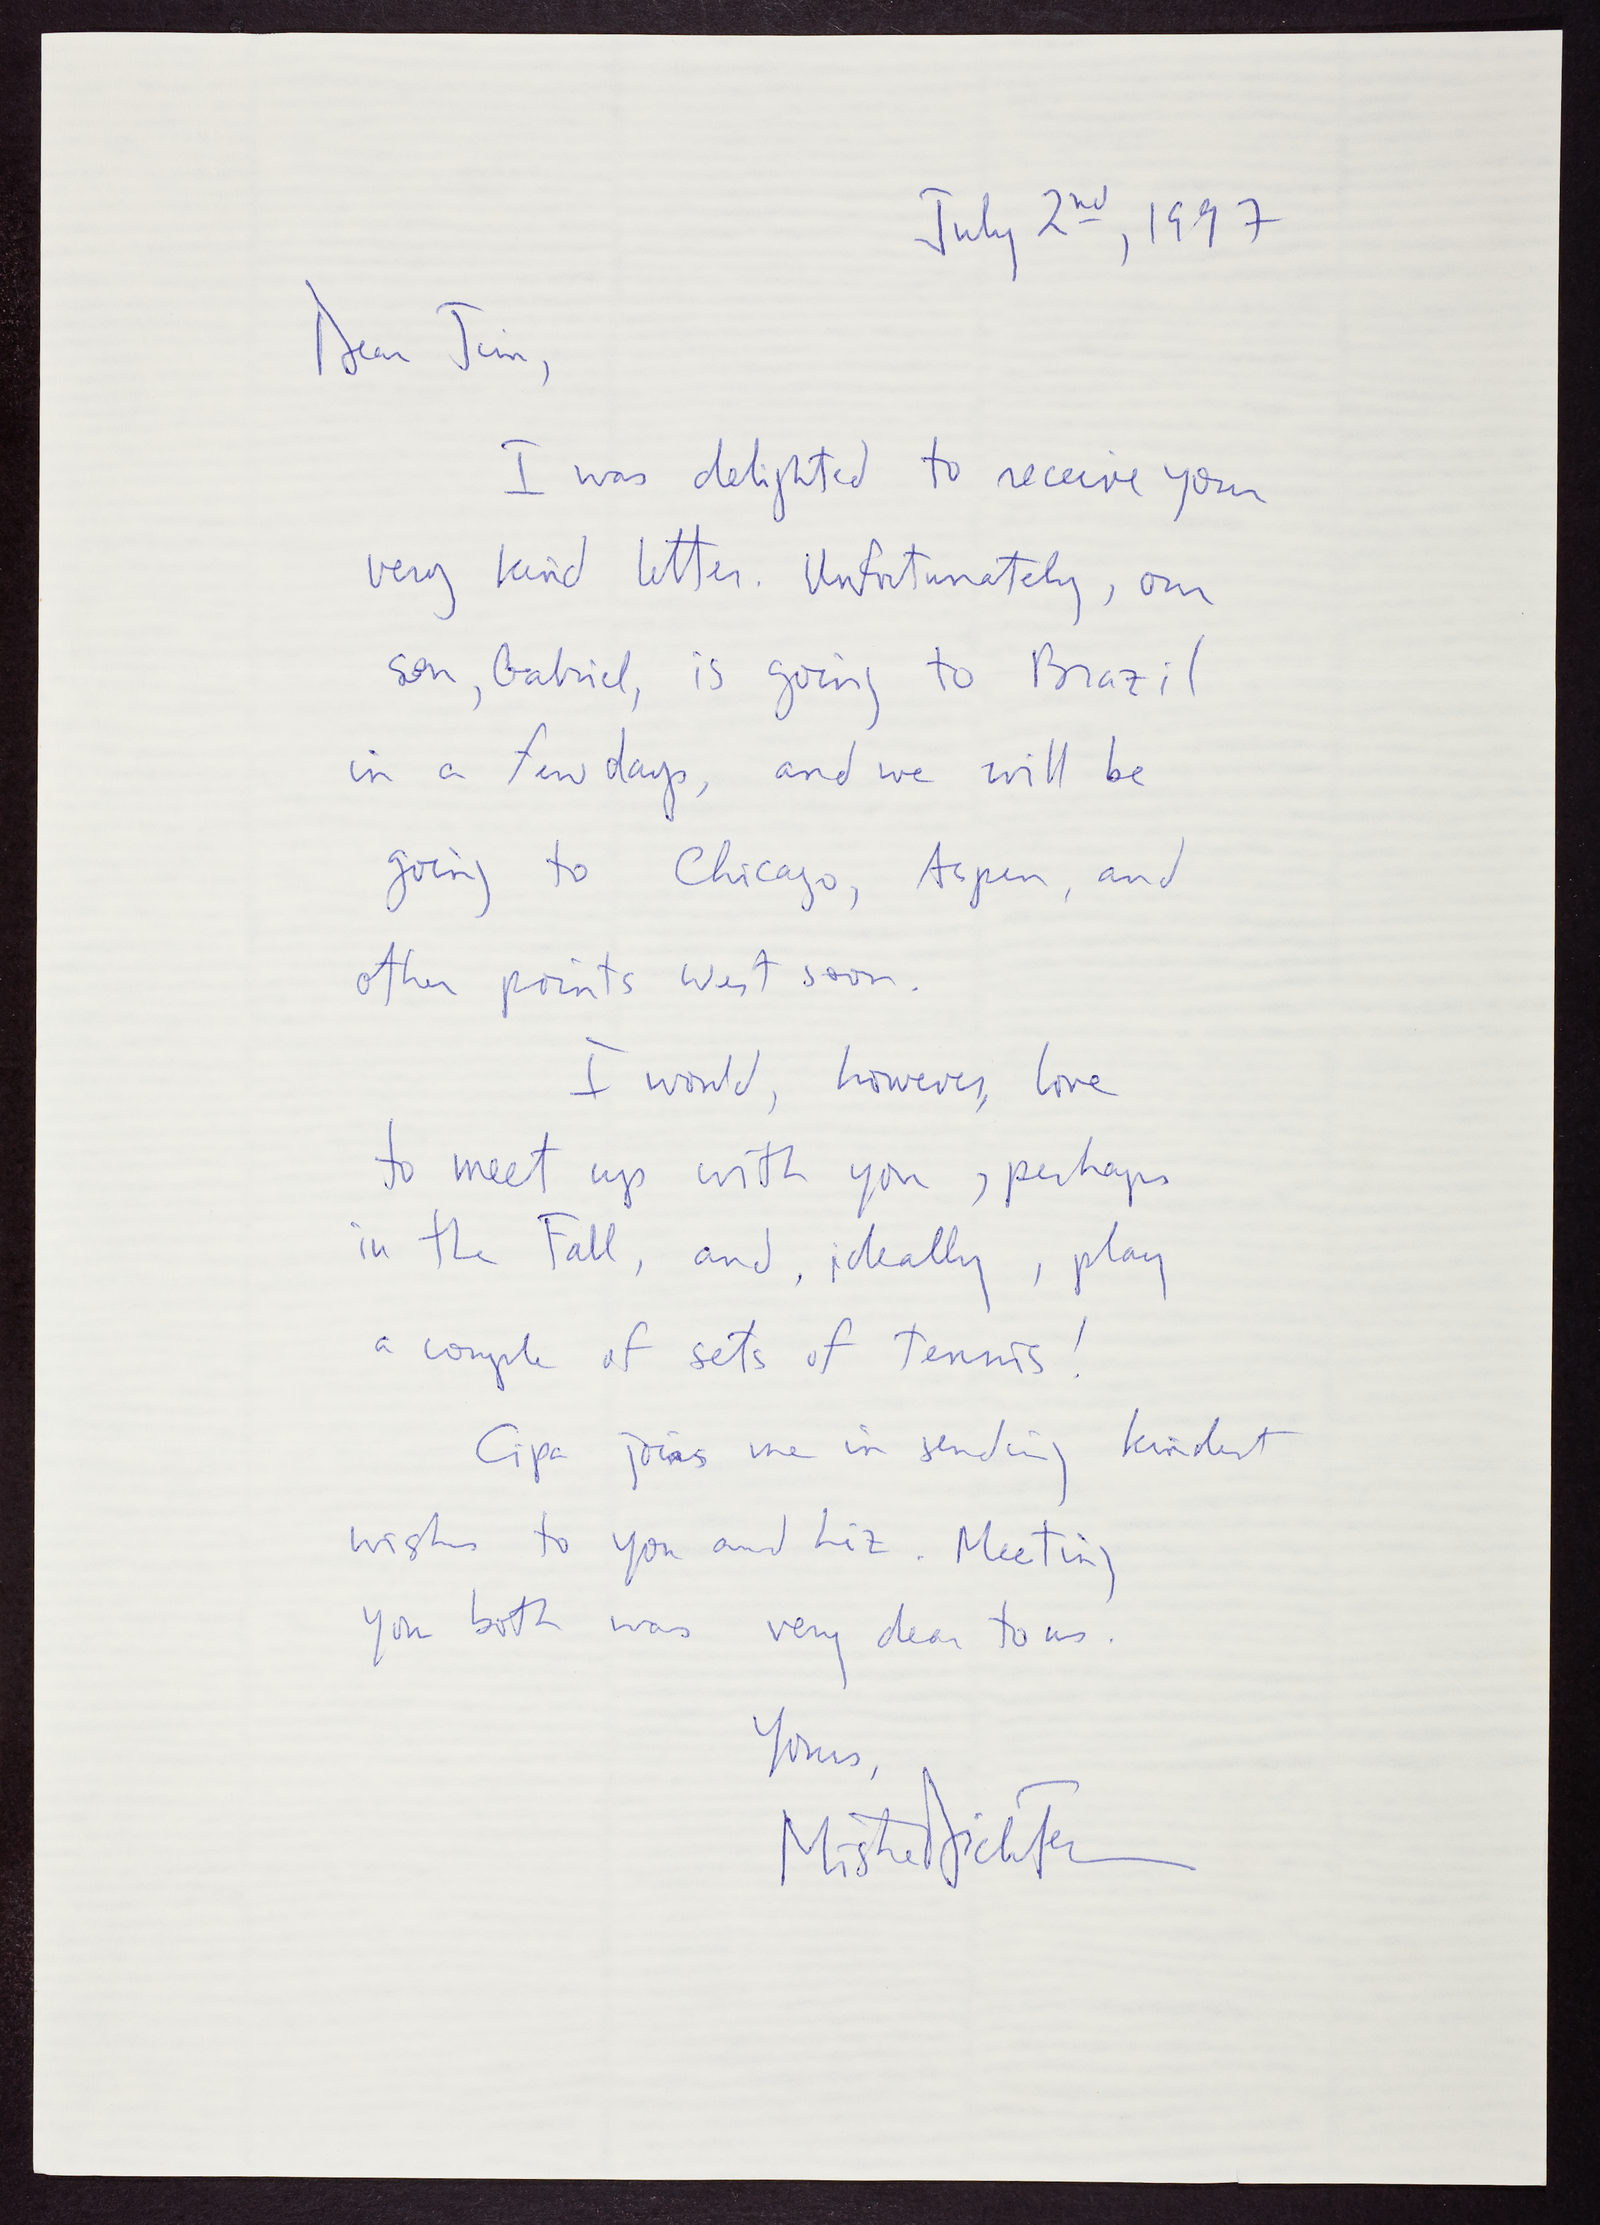 July 2nd, 1997
Dear Jim,
I was delighted to receive your
very kind letter. Unfortunately, our
son, Gabriel, is going to Brazil
in a few days, and we will be
going to Chicago, Aspen, and
other points west soon.
I would, however, love
to meet up with you, perhaps
in the Fall, and, ideally, play
a couple of sets of tennis!
Cipa joins me in sending kindest
wishes to you and Liz. Meeting
you both was very dear to us.
Yours,
Misha Dichter